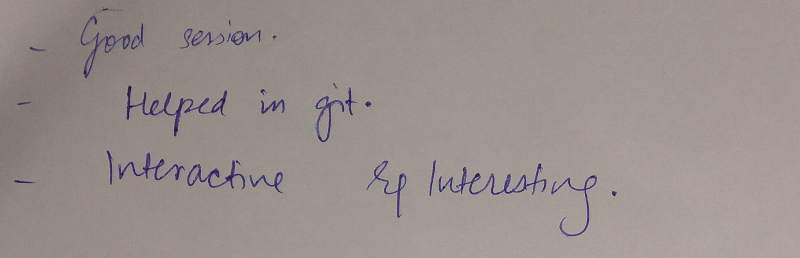 - Good session.
- Helped in git.
- Interactive & Interesting.